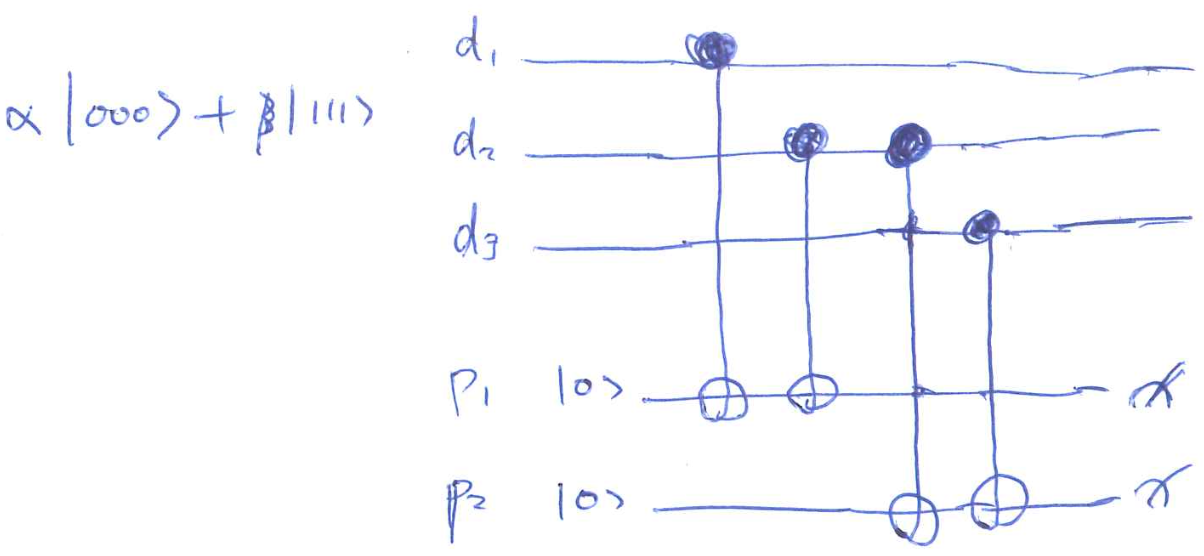 d₁
α |000⟩ + β|111⟩
d₂
d₃
p₁ |0⟩
p₂ |0⟩